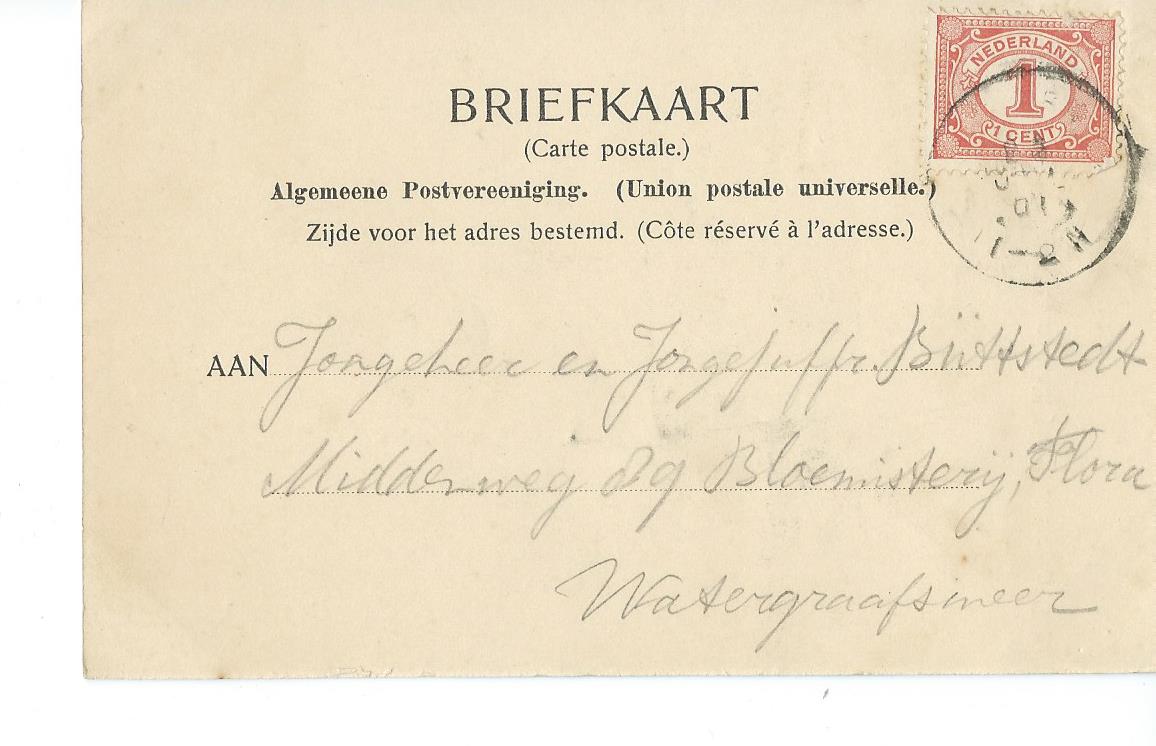 BRIEFKAART
(Carte postale.)
Algemeene Postvereeniging. (Union postale universelle.)
Zijde voor het adres bestemd. (Côte réservé à l'adresse.)
NEDERLAND
1
1 CENT
AAN Jongeheer en Jongejuffr. Büttstedt
Middenweg 89 Bloemisterij, Flora
Watergraafsmeer